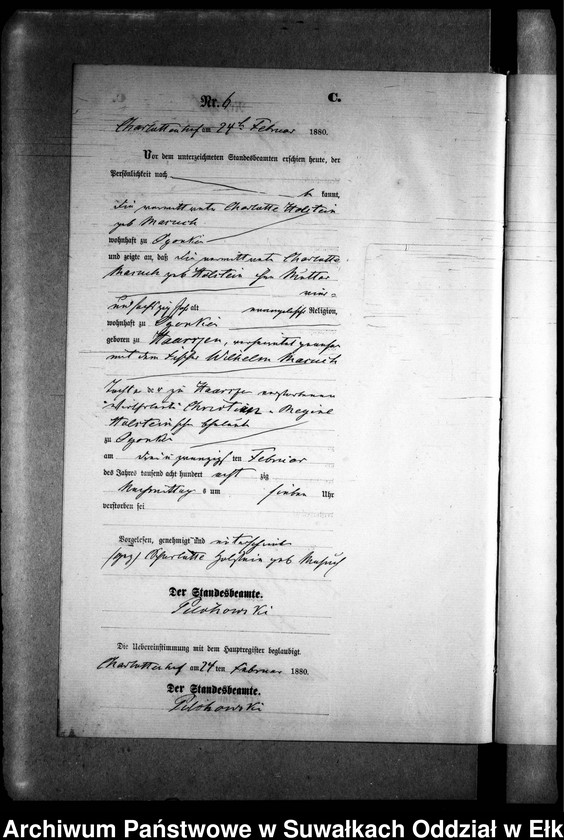 Nr. 6
C.
Charlottenhof am 24t Februar 1880.
Vor dem unterzeichneten Standesbeamten erschien heute, der
Persönlichkeit nach
be kannt,
die verwittwete Charlotte Holstein
geb Maruck
wohnhaft zu Ogonken
und zeigte an, daß die verwittwete Charlotte
Maruck geb Holstein ihre Mutter
vier-
und sechzig Jahr alt evangelische Religion,
wohnhaft zu Ogonken
geboren zu Haarszen, verheirathet gewesen
mit dem Fischer Wilhelm Maruck
Tochter der zu Haarszen verstorbenen
Christian u Regine
Holsteinschen Eheleute
zu Ogonken
am drei u zwanzigsten Februar
des Jahres tausend acht hundert acht zig
Nachmittags um sieben Uhr
verstorben sei
Vorgelesen, genehmigt und unterschrieben
(gez) Charlotte Holstein geb Maruck
Der Standesbeamte.
Die Uebereinstimmung mit dem Hauptregister beglaubigt.
Charlottenhof am 24 ten Februar 1880.
Der Standesbeamte.
Archiwum Państwowe w Suwałkach Oddział w Ełk